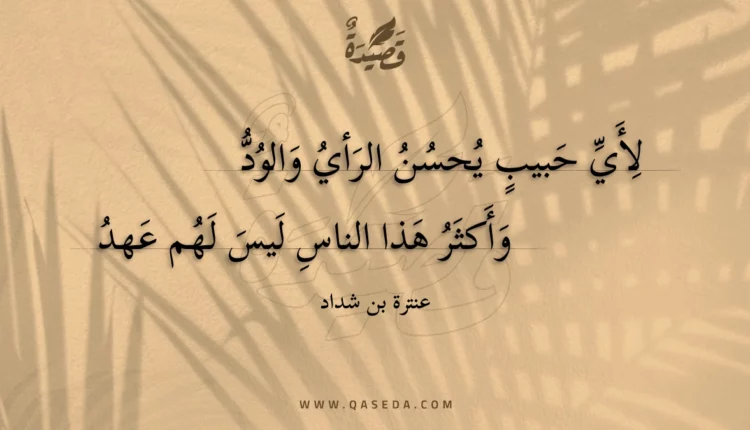 قَصِيْدَةٌ
لِأَيِّ حَبيبٍ يُحسُنُ الرَأيُ وَالوُدُّ
وَأَكثَرُ هَذا الناسِ لَيسَ لَهُم عَهدُ
عنترة بن شداد
WWW.QASEDA.COM